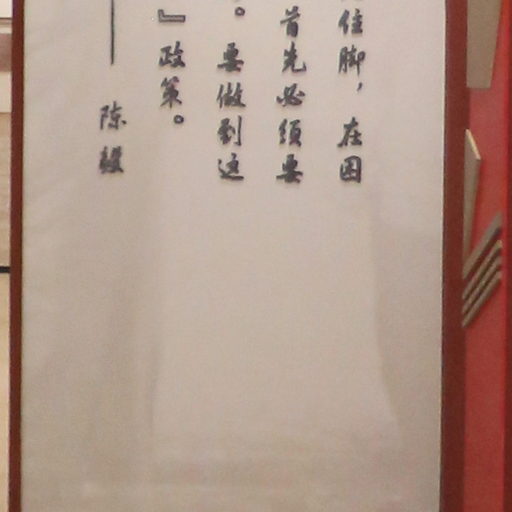 住脚，在困
首先必须要
。要做到这
』政策。
——陈毅